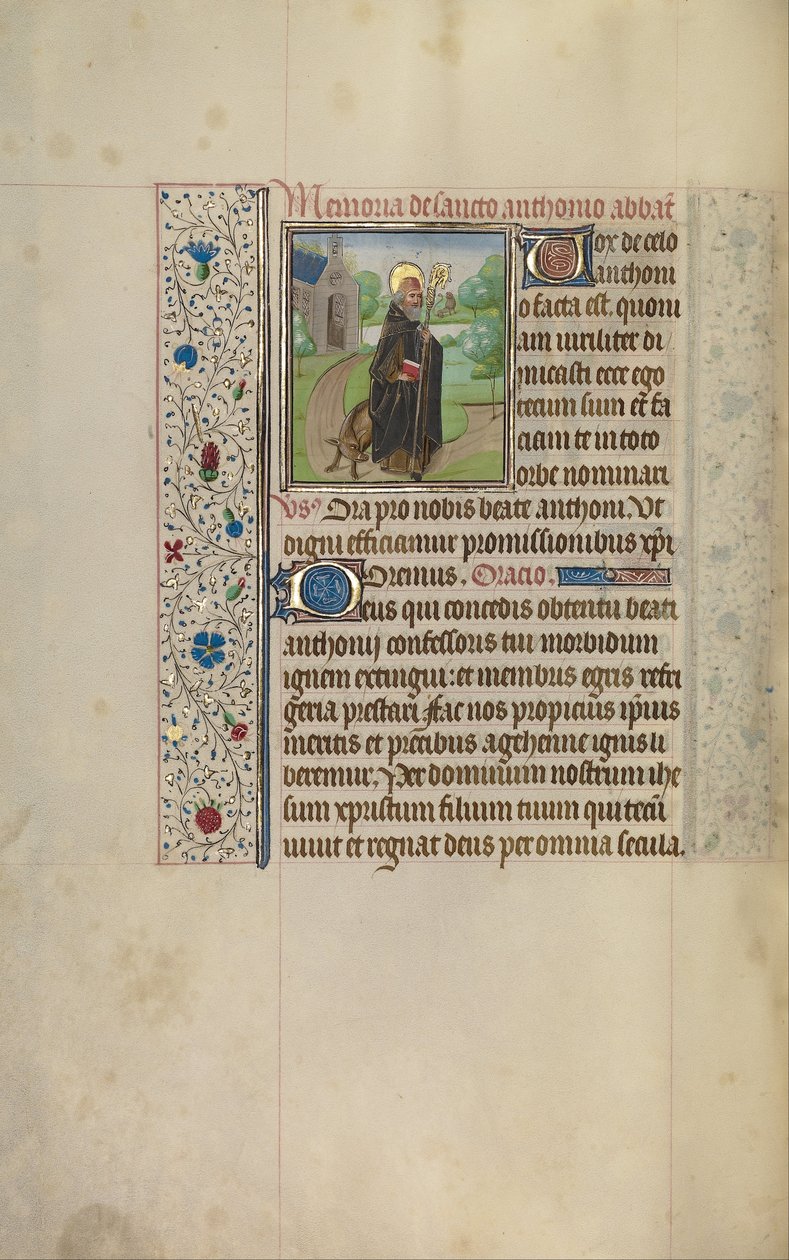 Memoria de sancto anthonio abbat̄
Vox de celo
anthoni
o facta est. quoni
am viriliter di
micasti ecce ego
tecum sum et fa
ciam te in toto
orbe nominari
vs⁹ Ora pro nobis beate anthoni. Vt
digni efficiamur promissionibus xp̄i
Oremus. Oracio.
Deus qui concedis obtentu beati
anthonij confessoris tui morbidum
ignem extingui: et membris egris refri
geria prestari fac nos propicius ip̄ius
meritis et precibus a gehenne ignis li
beremur. Per dominum nostrum ihe
sum xpristum filium tuum qui tecū
viuit et regnat deus per omnia secula.